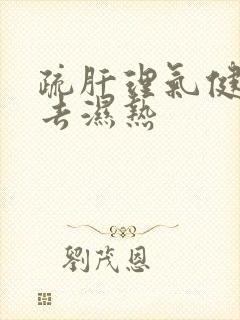 疏肝理氣健
去濕熱
劉茂恩